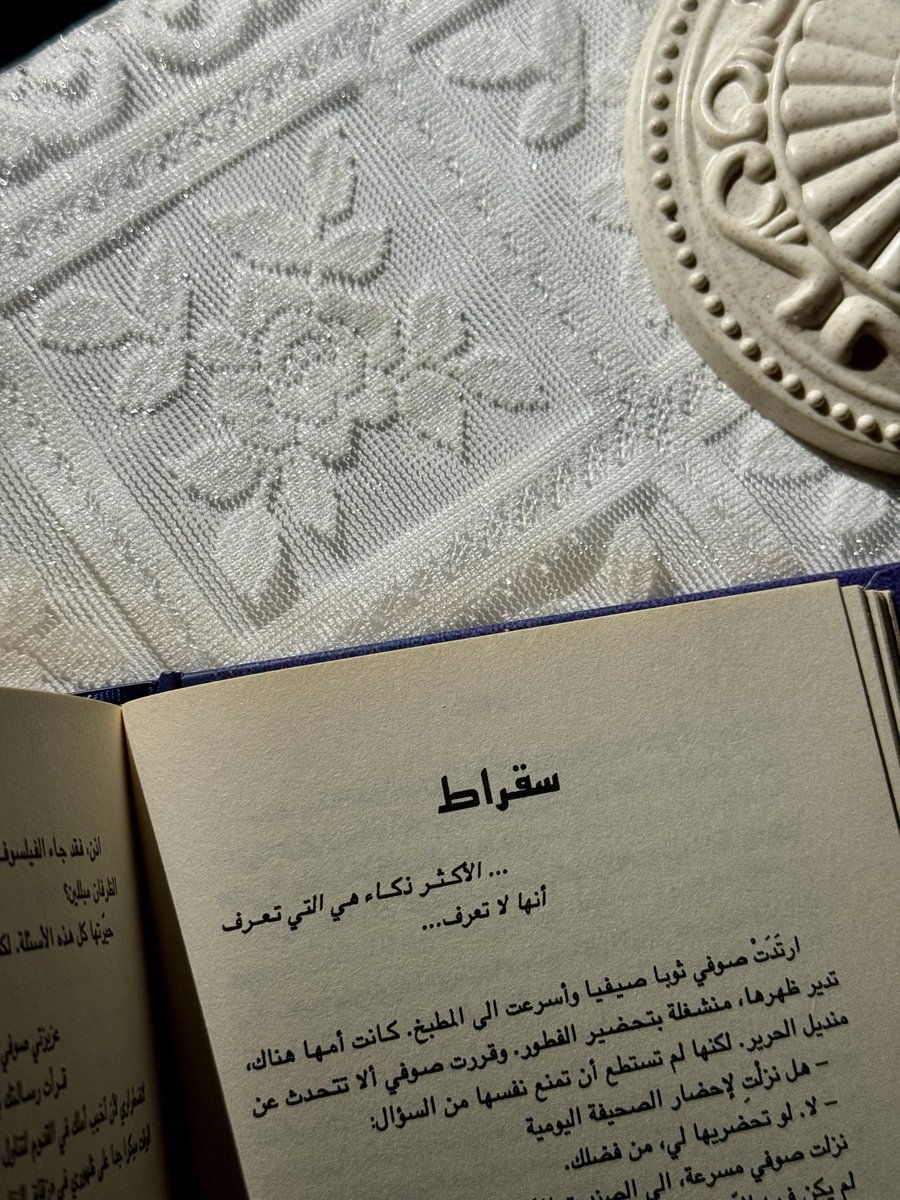 سقراط
... الأكثر ذكاء هي التي تعرف
أنها لا تعرف...
ارتَدَتْ صوفي ثوبا صيفيا وأسرعت الى المطبخ. كانت أمها هناك،
تدير ظهرها، منشغلة بتحضير الفطور. وقررت صوفي ألا تتحدث عن
منديل الحرير. لكنها لم تستطع أن تمنع نفسها من السؤال:
- هل نزلتِ لإحضار الصحيفة اليومية
- لا. لو تحضريها لي، من فضلك.
نزلت صوفي مسرعة، الى
لم يكن
اذن، فقد جاء الفيلسوف
الظرفان مبللين؟
حيّرتها كل هذه الأسئلة.
عزيزتي صوفي
قرأت رسالتك